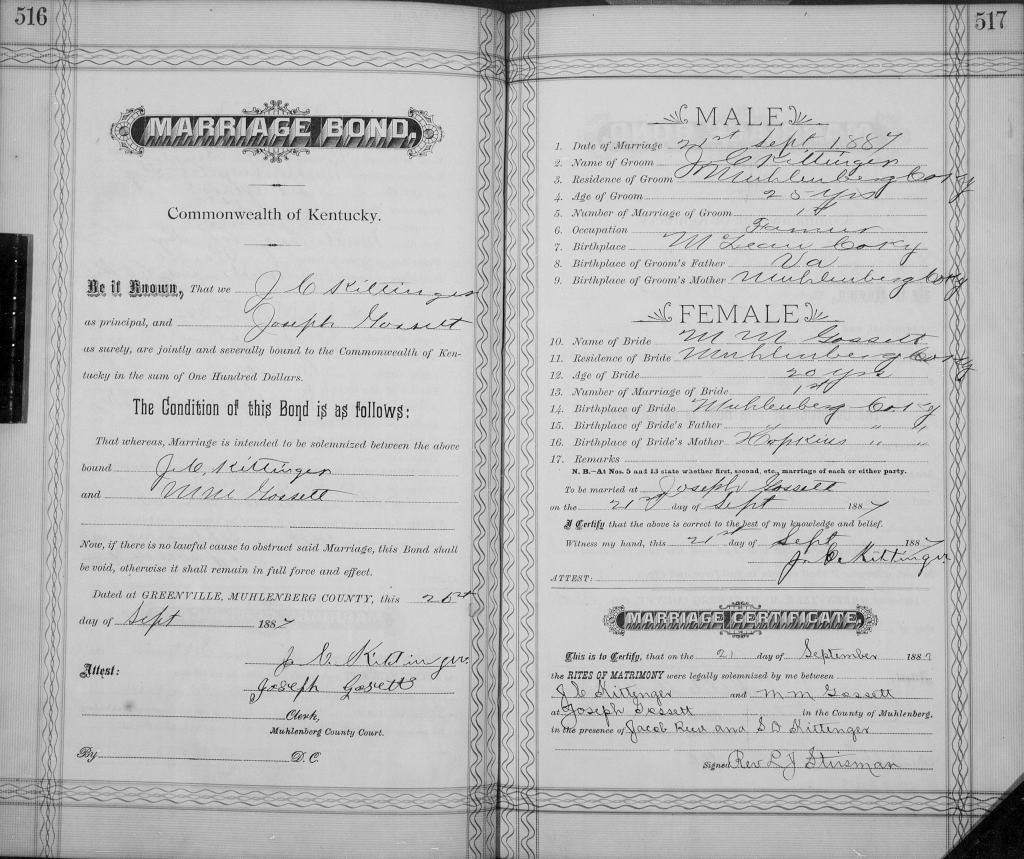 516
MARRIAGE BOND,
Commonwealth of Kentucky.
Be it Known, That we J C Kittinger
as principal, and Joseph Gossett
as surely, are jointly and severally bound to the Commonwealth of Ken-
tucky in the sum of One Hundred Dollars.
The Condition of this Bond is as follows:
That whereas, Marriage is intended to be solemnized between the above
bound J. C. Kittinger
and M M Gossett
Now, if there is no lawful cause to obstruct said Marriage, this Bond shall
be void, otherwise it shall remain in full force and effect.
Dated at GREENVILLE, MUHLENBERG COUNTY, this
day of Sept 1887
J. C. Kittinger
Attest:
Joseph Gossett
Clerk,
Muhlenberg County Court.
By D. C.
517
MALE
1. Date of Marriage 21st Sept 1887
2. Name of Groom J C Kittinger
3. Residence of Groom Muhlenberg Co Ky
4. Age of Groom 25 yrs
5. Number of Marriage of Groom 1st
6. Occupation Farmer
7. Birthplace McLean Co Ky
8. Birthplace of Groom's Father Va
9. Birthplace of Groom's Mother Muhlenberg Co Ky
FEMALE
10. Name of Bride M M Gossett
11. Residence of Bride Muhlenberg Co Ky
12. Age of Bride 20 yrs
13. Number of Marriage of Bride 1st
14. Birthplace of Bride Muhlenberg Co Ky
15. Birthplace of Bride's Father " " "
16. Birthplace of Bride's Mother Hopkins " "
17. Remarks
N. B.—At Nos. 5 and 13 state whether first, second, etc., marriage of each or either party.
To be married at Joseph Gossett
on the 21st day of Sept 1887
I Certify that the above is correct to the best of my knowledge and belief.
Witness my hand, this 21st day of Sept 1887
J. C. Kittinger
ATTEST:
MARRIAGE CERTIFICATE.
This is to Certify, that on the 21 day of September 1887
the RITES OF MATRIMONY were legally solemnized by me between
J C Kittinger and M M Gossett
at Joseph Gossett in the County of Muhlenberg,
in the presence of Jacob and S D Kittinger
Signed Rev L J Stirsman